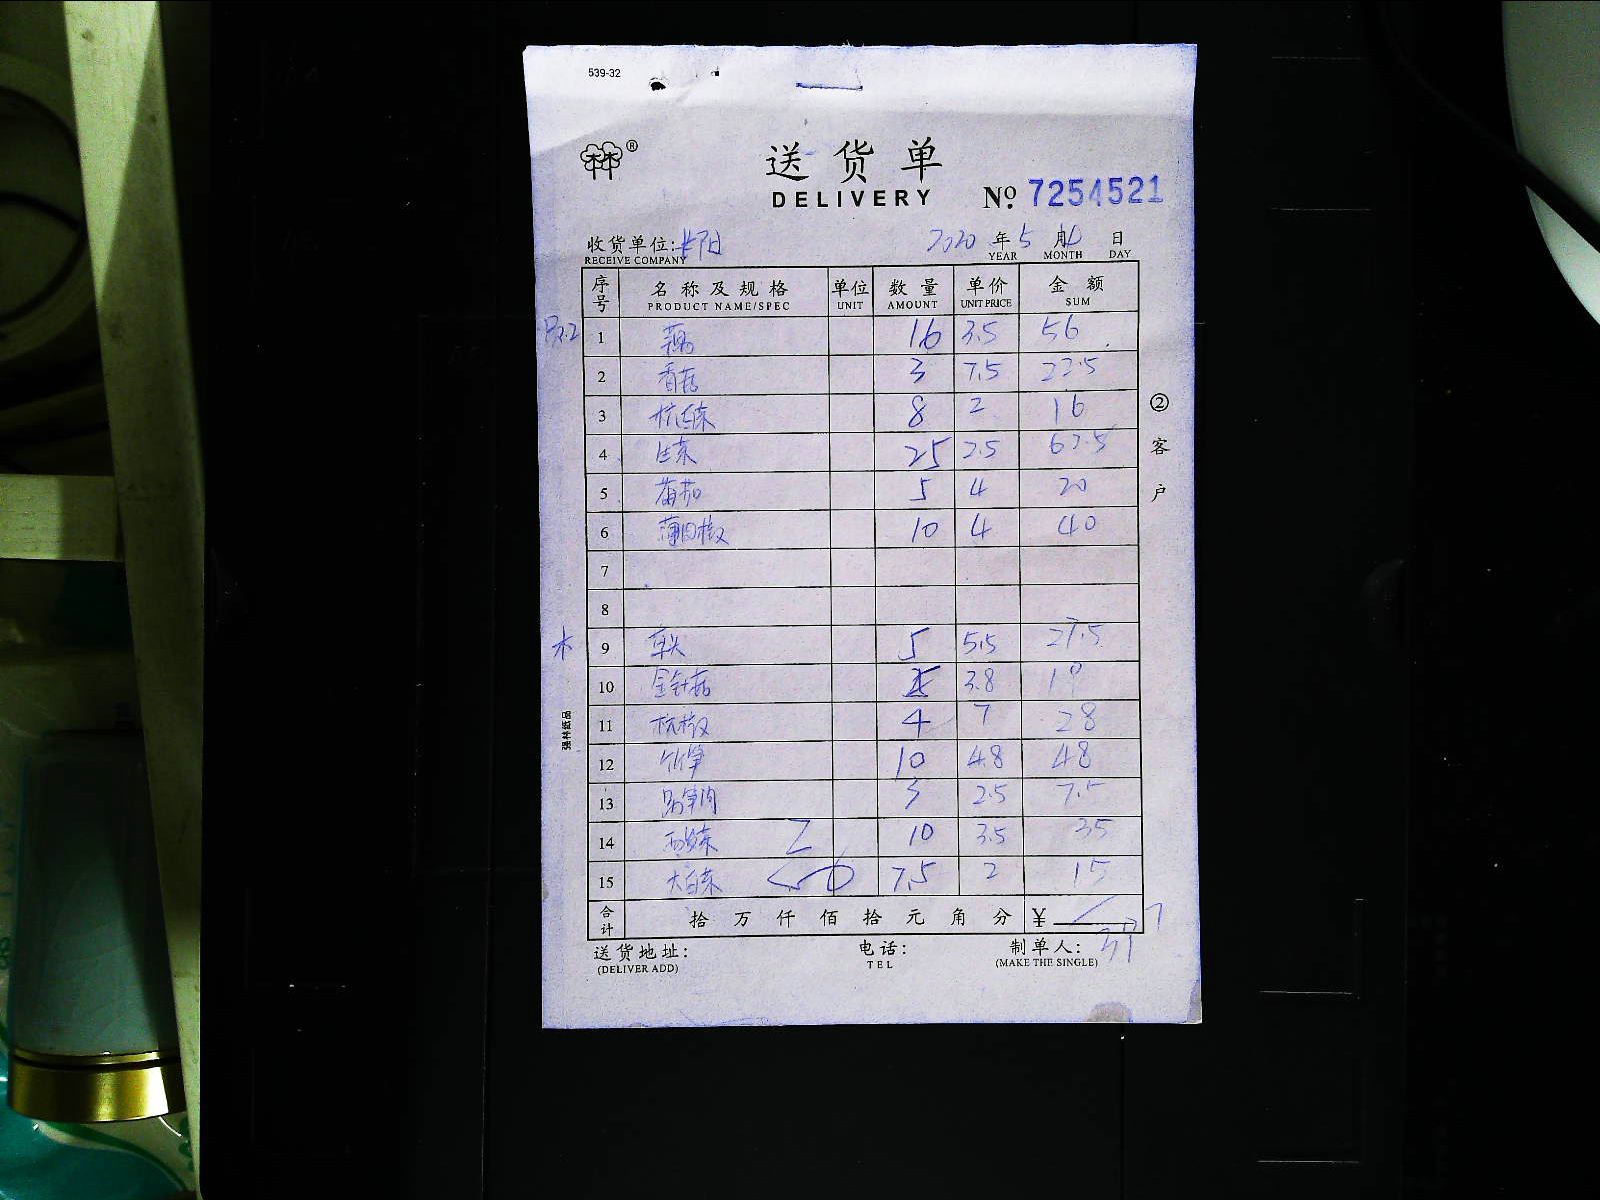 539-32
林林®
送货单
DELIVERY № 7254521
收货单位: 2020 年 5 月 日
RECEIVE COMPANY YEAR MONTH DAY
序号 名称及规格 单位 数量 单价 金额
PRODUCT NAME/SPEC UNIT AMOUNT UNIT PRICE SUM
1 藕 16 3.5 56
2 香菇 3 7.5 22.5
3 8 2 16
4 生菜 25 2.5 62.5
5 蕃茄 5 4 20
6 薄皮椒 10 4 40
7
8
9 5 5.5 27.5
10 金针菇 5 3.8 19
11 杭椒 4 7 28
12 竹笋 10 4.8 48
13 3 2.5 7.5
14 10 3.5 35
15 大白菜 7.5 2 15
合计 拾万仟佰拾元角分 ¥
送货地址: 电话: 制单人:
(DELIVER ADD) TEL (MAKE THE SINGLE)
②客户
强林纸品